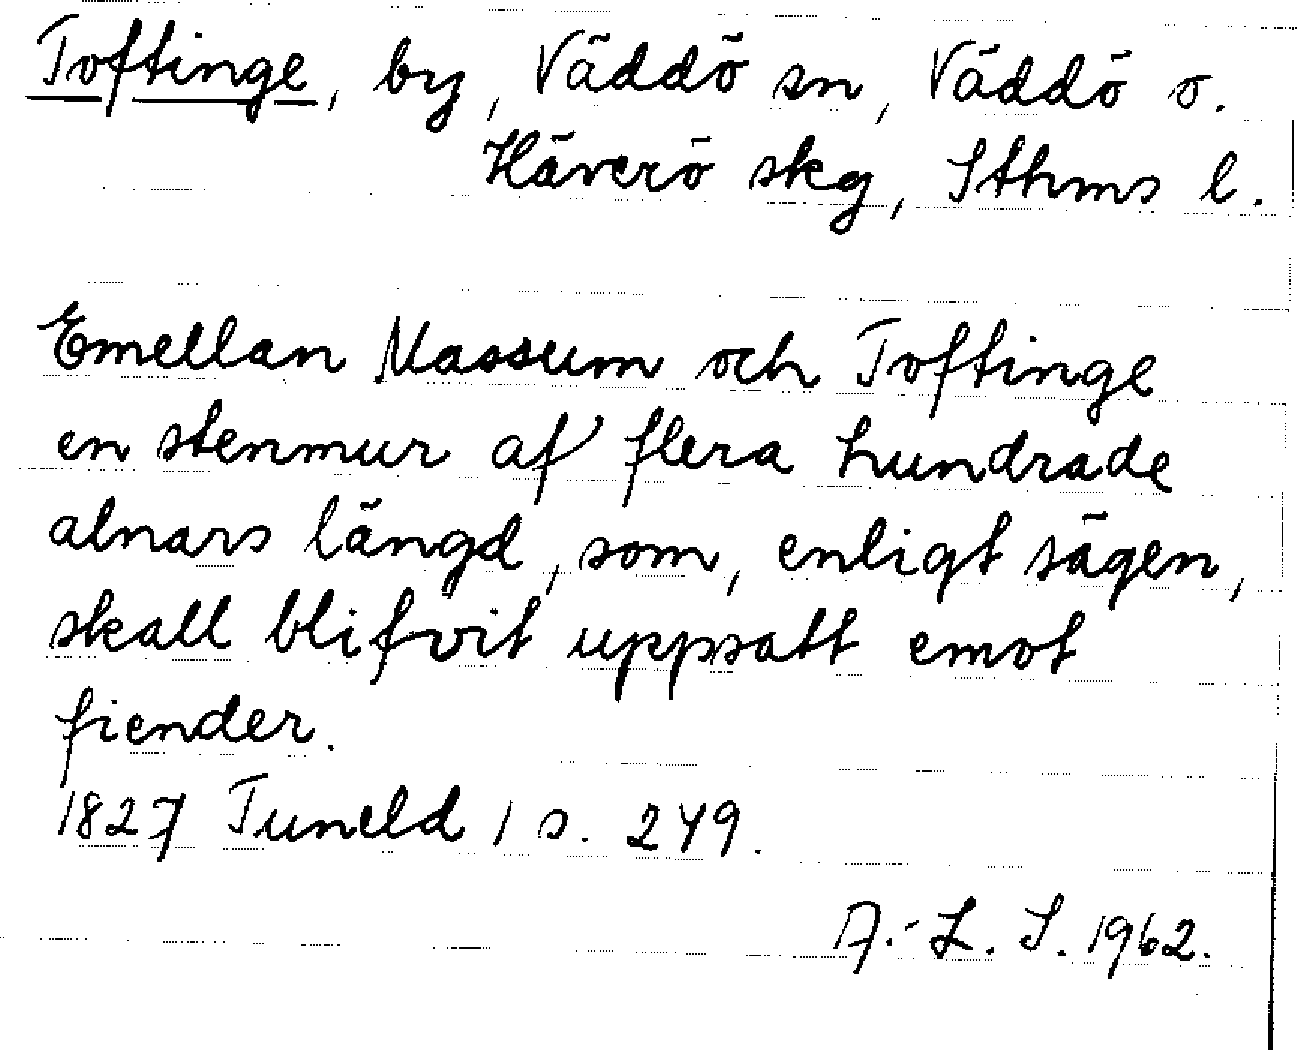 Toftinge, by, Väddö sn, Väddö o.
Häverö skg, Sthms l.
Emellan Massum och Toftinge
en stenmur af flera hundrade
alnars längd, som, enligt sägen,
skall blifvit uppsatt emot
fiender.
1827 Tuneld 1 s. 249.
A.-L. S. 1962.